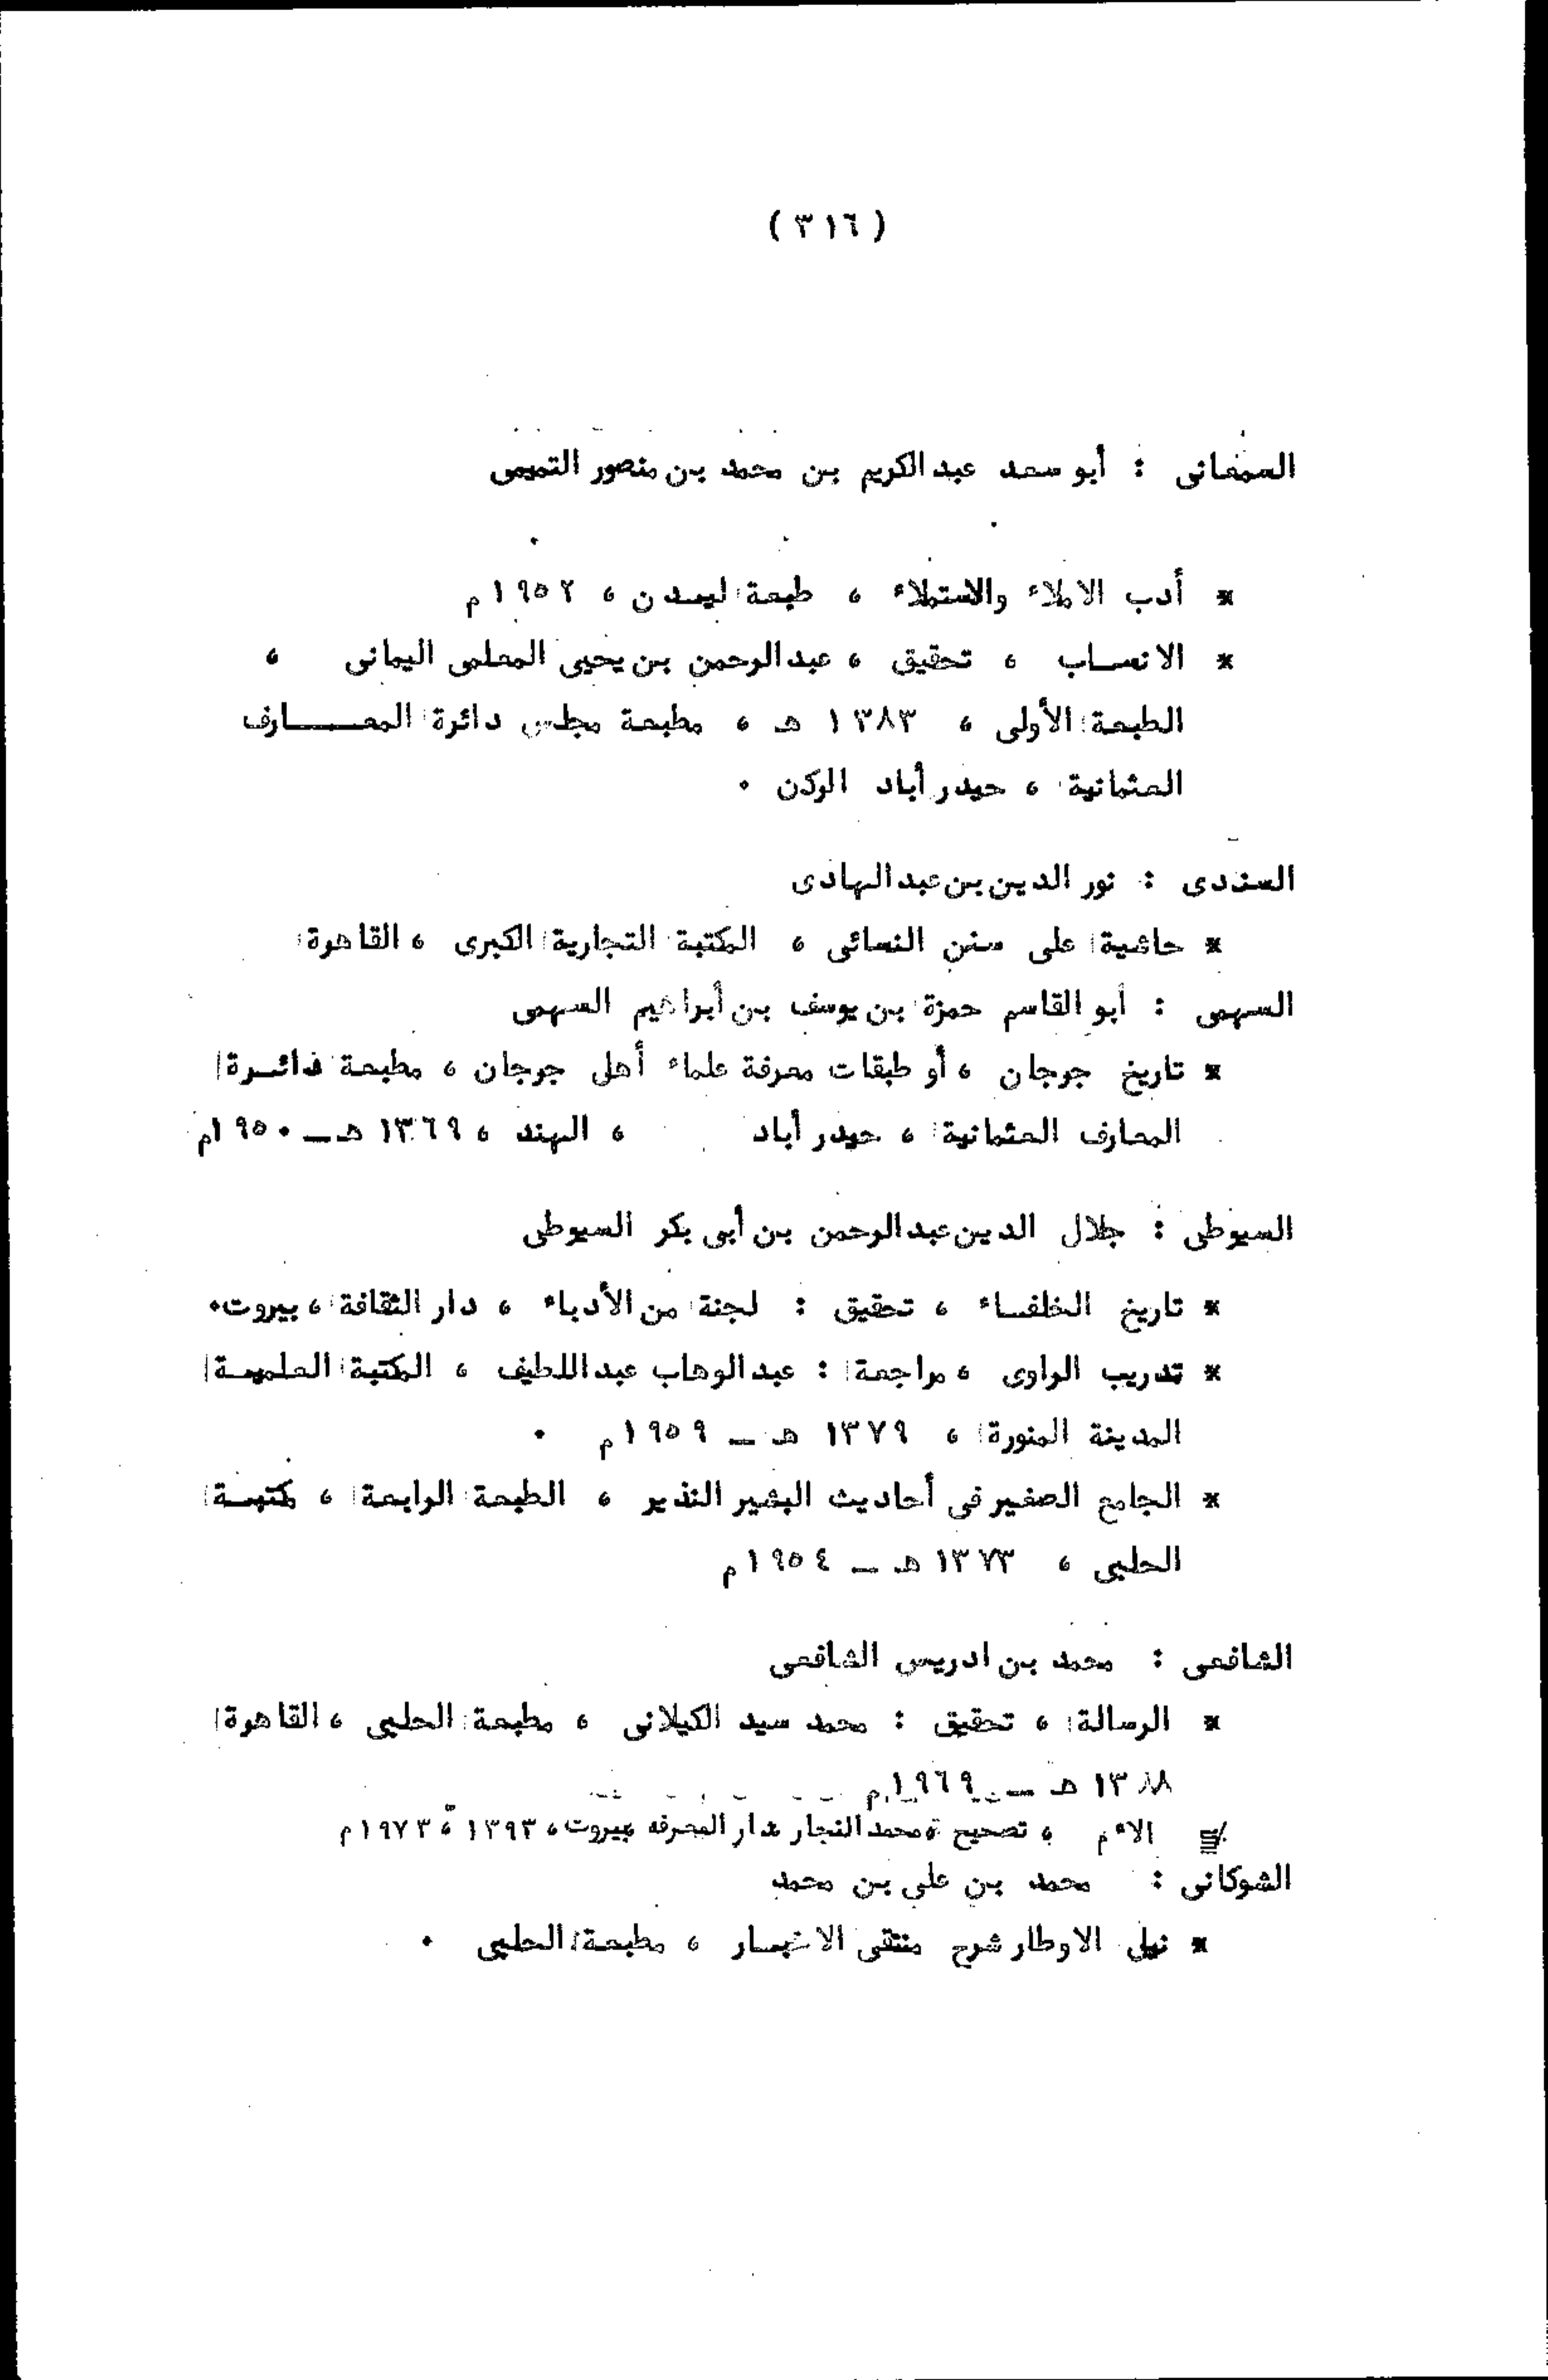 ( ٣١٦ )
السمعانى : أبو سعد عبد الكريم بن محمد بن منصور التميمى
* أدب الاملاء والاستملاء ، طبعة ليـدن ، ١٩٥٢م
* الانسـاب ، تحقيق ، عبد الرحمن بن يحيى المعلمى اليمانى ،
الطبعة الأولى ، ١٣٨٣ هـ ، مطبعة مجلس دائرة المعـــــارف
العثمانية ، حيدر أباد الركن .
السندى : نور الدين بن عبد الهادى
* حاشية على سنن النسائى ، المكتبة التجارية الكبرى ، القاهرة
السهمى : أبو القاسم حمزة بن يوسف بن أبراهيم السهمى
* تاريخ جرجان ، أو طبقات معرفة علماء أهل جرجان ، مطبعة دائـرة
المعارف العثمانية ، حيدر أباد ، الهند ، ١٣٦٩ هـ ــ ١٩٥٠م
السيوطى : جلال الدين عبد الرحمن بن أبى بكر السيوطى
* تاريخ الخلفـاء ، تحقيق : لجنة من الأدباء ، دار الثقافة ، بيروت.
* تدريب الراوى ، مراجعة : عبد الوهاب عبد اللطيف ، المكتبة العلميـة
المدينة المنورة ، ١٣٧٩ هـ ــ ١٩٥٩م .
* الجامع الصغير فى أحاديث البشير النذير ، الطبعة الرابعة ، مكتبـة
الحلبى ، ١٣٧٣ هـ ــ ١٩٥٤م
الشافعى : محمد بن ادريس الشافعى
* الرسالة ، تحقيق : محمد سيد الكيلانى ، مطبعة الحلبى ، القاهرة
١٣٨٨ هـ ــ ١٩٦٩م
الاٴم ، تصحيح ، محمد النجار ، دار المعرفه ، بيروت ، ١٣٩٣ ، ١٩٧٣م
الشوكانى : محمد بن على بن محمد
* نيل الاوطار شرح منتقى الاخبـار ، مطبعة الحلبى .